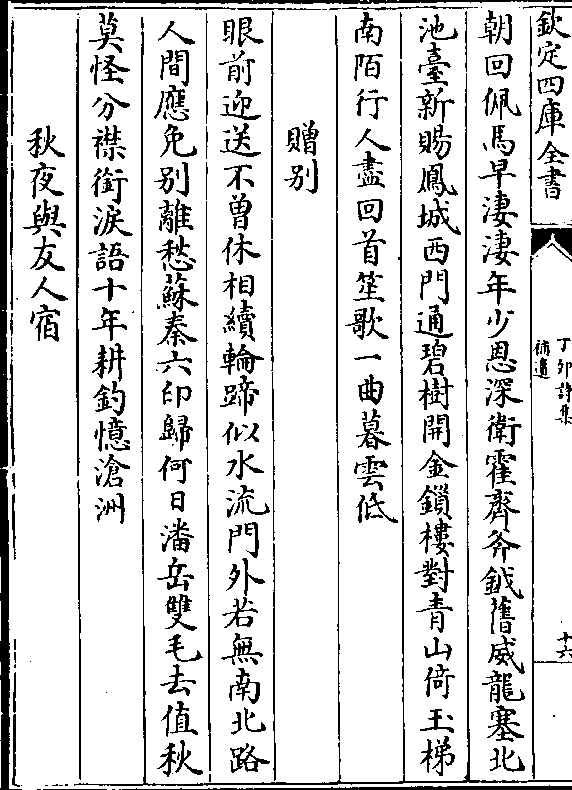 欽定四庫全書
丁卯詩集
補遺
十六
朝回佩馬早淒淒年少恩深衛霍齊斧鉞舊威龍塞北
池臺新賜鳳城西門通碧樹開金鎖樓對青山倚玉梯
南陌行人盡回首笙歌一曲暮雲低
贈别
眼前迎送不曾休相續輪蹄似水流門外若無南北路
人間應免别離愁蘇秦六印歸何日潘岳雙毛去值秋
莫怪分襟銜淚語十年耕釣憶滄洲
秋夜與友人宿